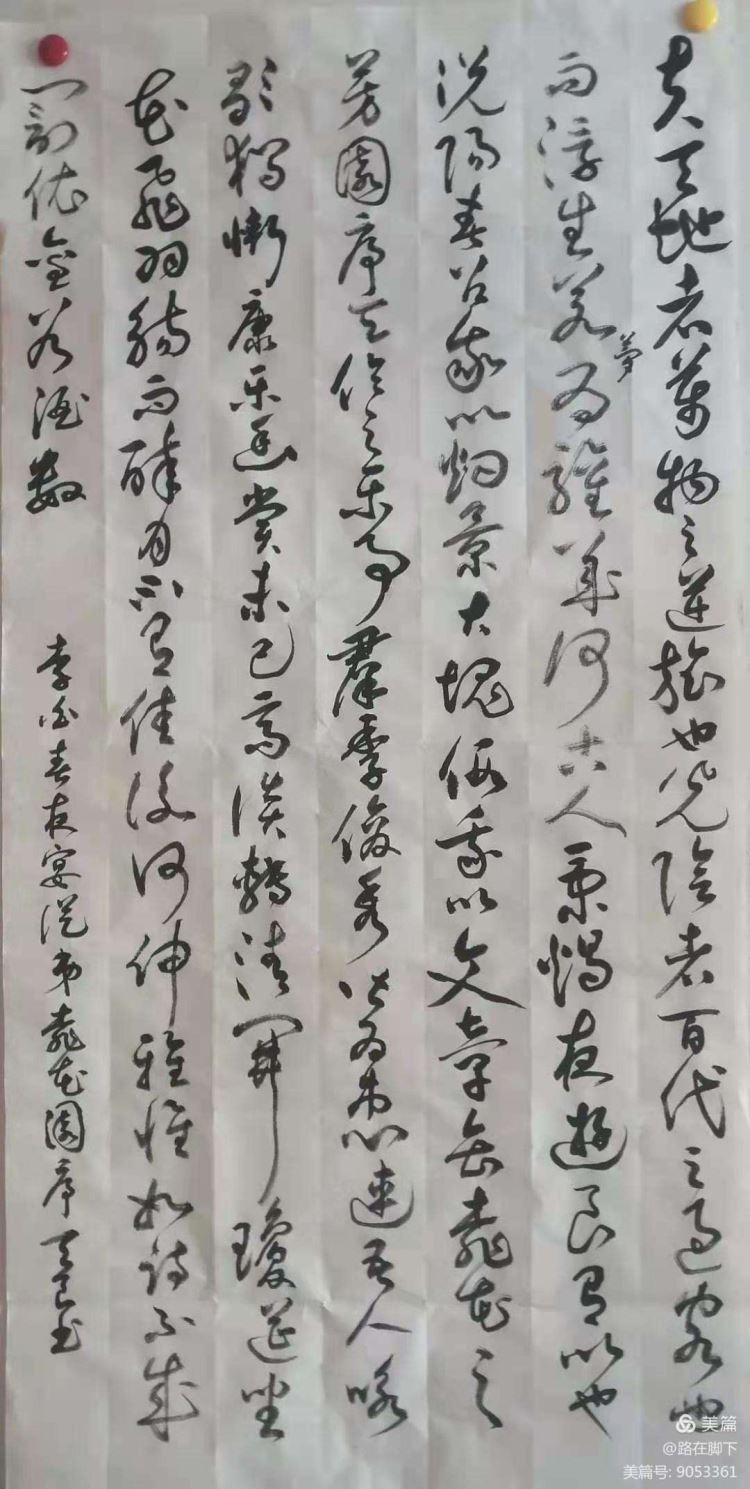 夫天地者萬物之逆旅也光陰者百代之過客也
而浮生若夢為歡幾何古人秉燭夜遊良有以也
況陽春召我以煙景大塊假我以文章會桃花之
芳園序天倫之樂事群季俊秀皆為惠連吾人詠
歌獨慚康樂幽賞未已高談轉清開瓊筵坐
花飛羽觴而醉月不有佳詠何伸雅懷如詩不成
罰依金谷酒數
李白春夜宴從弟桃花園序 书
美篇
@路在脚下
美篇号: 9053361